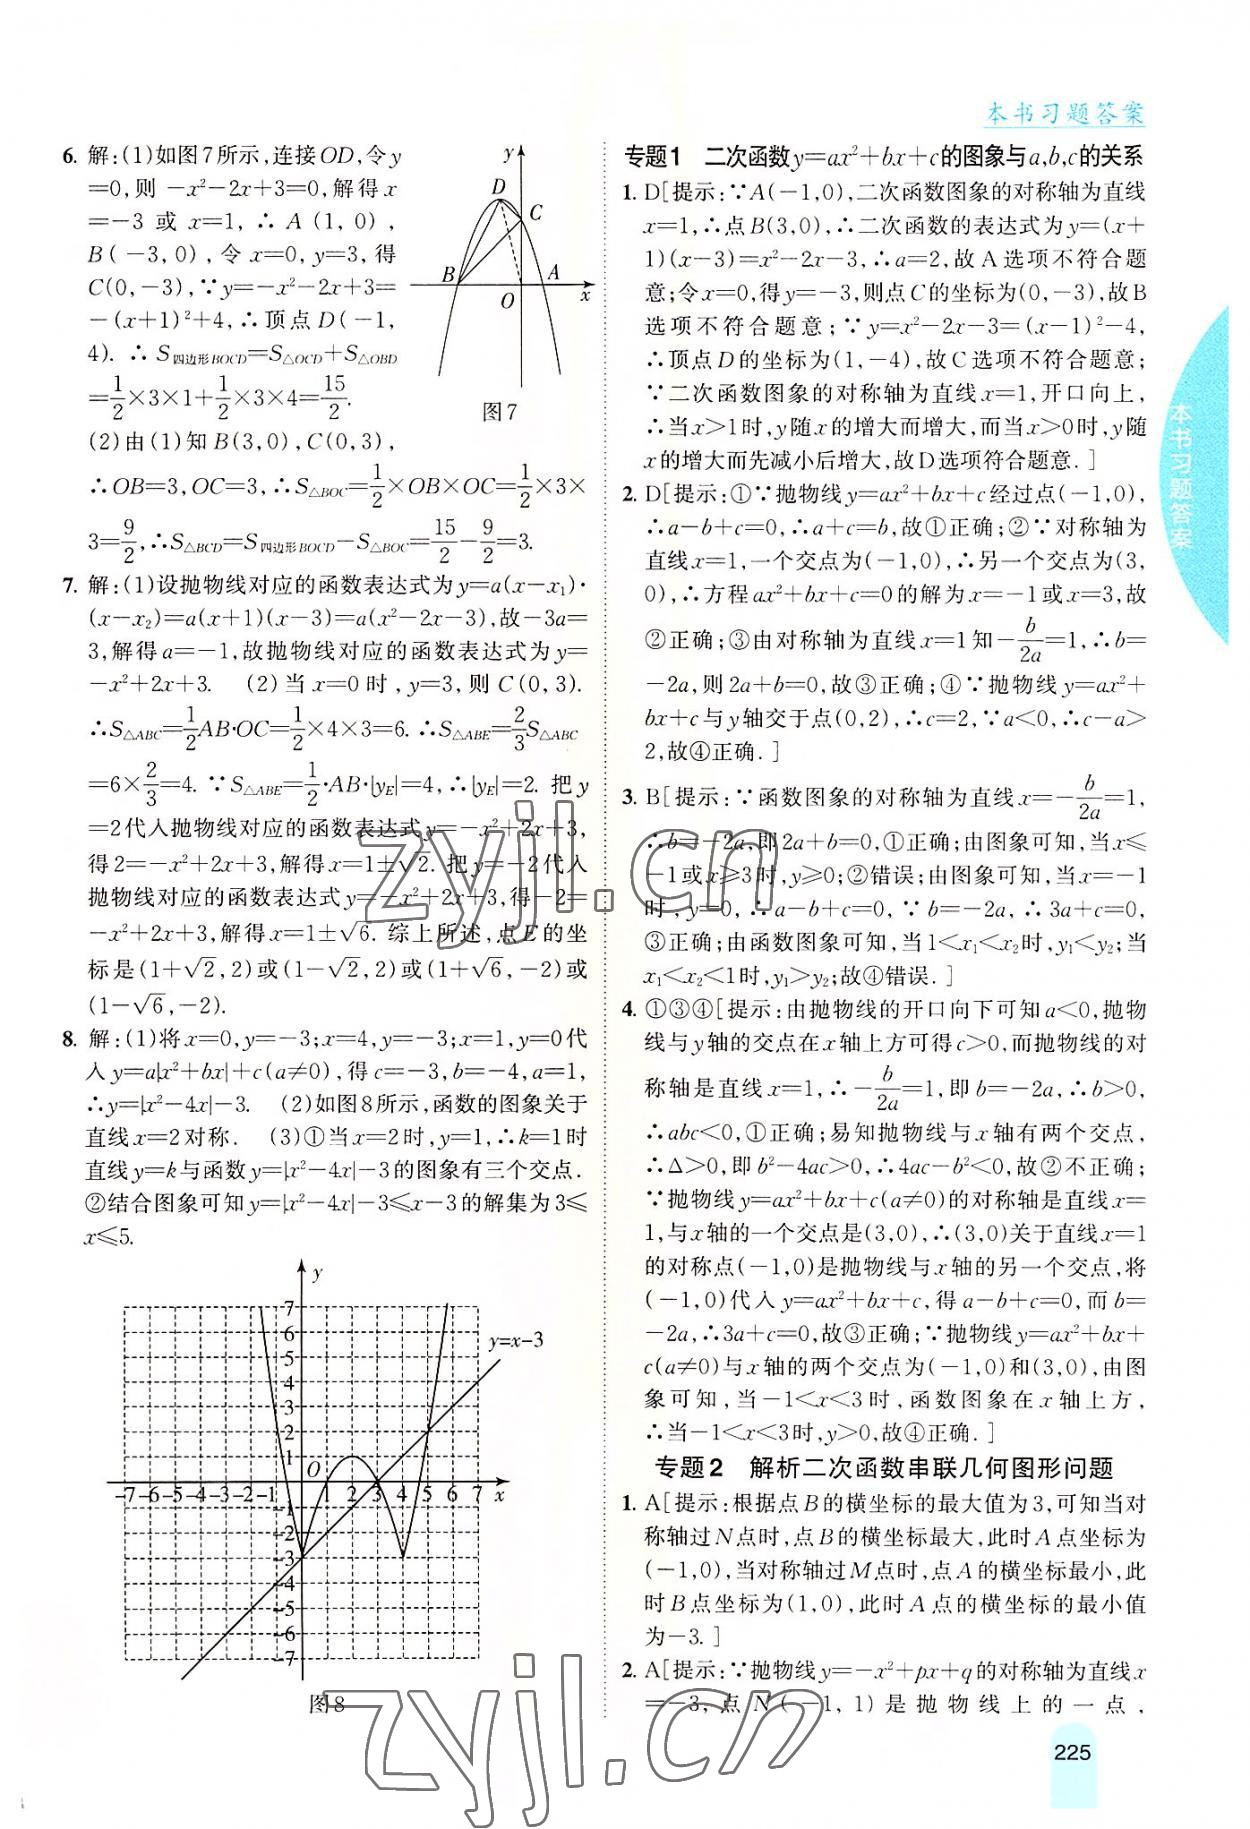 本书习题答案
6. 解:(1)如图7所示,连接OD,令y
=0,则 -x²-2x+3=0,解得x
=-3 或 x=1, ∴ A (1, 0) ,
B(-3,0),令 x=0, y=3, 得
C(0,-3),∵y=-x²-2x+3=
-(x+1)²+4,∴顶点D(-1,
4). ∴ S四边形BOCD=S△OCD+S△OBD
=1/2×3×1+1/2×3×4=15/2.
(2)由(1)知B(3,0),C(0,3),
∴OB=3,OC=3,∴S△BOC=1/2×OB×OC=1/2×3×
3=9/2,∴S△BCD=S四边形BOCD-S△BOC=15/2-9/2=3.
y
D
C
B
A
O
x
图7
7. 解:(1)设抛物线对应的函数表达式为y=a(x-x₁)·
(x-x₂)=a(x+1)(x-3)=a(x²-2x-3),故-3a=
3,解得a=-1,故抛物线对应的函数表达式为y=
-x²+2x+3. (2)当x=0时,y=3,则C(0,3).
∴S△ABC=1/2AB·OC=1/2×4×3=6. ∴S△ABE=2/3S△ABC
=6×2/3=4. ∵S△ABE=1/2·AB·|yE|=4,∴|yE|=2. 把y
=2代入抛物线对应的函数表达式y=-x²+2x+3,
得2=-x²+2x+3,解得x=1±√2. 把y=-2代入
抛物线对应的函数表达式y=-x²+2x+3,得-2=
-x²+2x+3,解得x=1±√6. 综上所述,点E的坐
标是(1+√2,2)或(1-√2,2)或(1+√6,-2)或
(1-√6,-2).
8. 解:(1)将x=0,y=-3;x=4,y=-3;x=1,y=0代
入y=a|x²+bx|+c(a≠0),得c=-3,b=-4,a=1,
∴y=|x²-4x|-3. (2)如图8所示,函数的图象关于
直线x=2对称. (3)①当x=2时,y=1,∴k=1时
直线y=k与函数y=|x²-4x|-3的图象有三个交点.
②结合图象可知y=|x²-4x|-3≤x-3的解集为3≤
x≤5.
y
7
6
5
4
3
2
1
y=x-3
O
-7-6-5-4-3-2-1
1 2 3 4 5 6 7 x
-1
-2
-3
-4
-5
-6
-7
图8
专题1 二次函数y=ax²+bx+c的图象与a,b,c的关系
1. D[提示:∵A(-1,0),二次函数图象的对称轴为直线
x=1,∴点B(3,0),∴二次函数的表达式为y=(x+
1)(x-3)=x²-2x-3,∴a=2,故A选项不符合题
意;令x=0,得y=-3,则点C的坐标为(0,-3),故B
选项不符合题意;∵y=x²-2x-3=(x-1)²-4,
∴顶点D的坐标为(1,-4),故C选项不符合题意;
∵二次函数图象的对称轴为直线x=1,开口向上,
∴当x>1时,y随x的增大而增大,而当x>0时,y随
x的增大而先减小后增大,故D选项符合题意. ]
2. D[提示:①∵抛物线y=ax²+bx+c经过点(-1,0),
∴a-b+c=0,∴a+c=b,故①正确;②∵对称轴为
直线x=1,一个交点为(-1,0),∴另一个交点为(3,
0),∴方程ax²+bx+c=0的解为x=-1或x=3,故
②正确;③由对称轴为直线x=1知-b/2a=1,∴b=
-2a,则2a+b=0,故③正确;④∵抛物线y=ax²+
bx+c与y轴交于点(0,2),∴c=2,∵a<0,∴c-a>
2,故④正确. ]
3. B[提示:∵函数图象的对称轴为直线x=-b/2a=1,
∴b=-2a,即2a+b=0,①正确;由图象可知,当x≤
-1或x≥3时,y≥0;②错误;由图象可知,当x=-1
时,y=0,∴a-b+c=0,∵b=-2a,∴3a+c=0,
③正确;由函数图象可知,当1<x₁<x₂时,y₁<y₂;当
x₁<x₂<1时,y₁>y₂;故④错误. ]
4. ①③④[提示:由抛物线的开口向下可知a<0,抛物
线与y轴的交点在x轴上方可得c>0,而抛物线的对
称轴是直线x=1,∴-b/2a=1,即b=-2a,∴b>0,
∴abc<0,①正确;易知抛物线与x轴有两个交点,
∴Δ>0,即b²-4ac>0,∴4ac-b²<0,故②不正确;
∵抛物线y=ax²+bx+c(a≠0)的对称轴是直线x=
1,与x轴的一个交点是(3,0),∴(3,0)关于直线x=1
的对称点(-1,0)是抛物线与x轴的另一个交点,将
(-1,0)代入y=ax²+bx+c,得a-b+c=0,而b=
-2a,∴3a+c=0,故③正确;∵抛物线y=ax²+bx+
c(a≠0)与x轴的两个交点为(-1,0)和(3,0),由图
象可知,当-1<x<3时,函数图象在x轴上方,
∴当-1<x<3时,y>0,故④正确. ]
专题2 解析二次函数串联几何图形问题
1. A[提示:根据点B的横坐标的最大值为3,可知当对
称轴过N点时,点B的横坐标最大,此时A点坐标为
(-1,0),当对称轴过M点时,点A的横坐标最小,此
时B点坐标为(1,0),此时A点的横坐标的最小值
为-3. ]
2. A[提示:∵抛物线y=-x²+px+q的对称轴为直线x
=-3,点N(-1,1)是抛物线上的一点,
本书习题答案
225
zyjl.cn
zyjl.cn